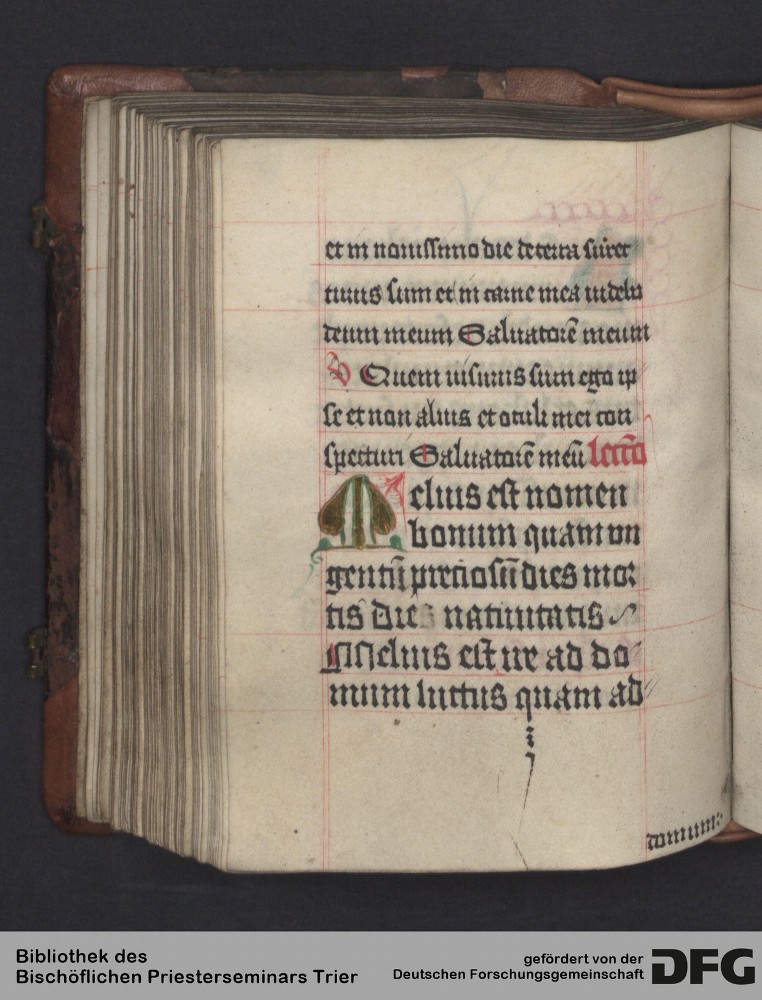 et in nouissimo die de terra surrec
turus sum et in carne mea uidebo
deum meum Saluatorē meum
V Quem uisurus sum ego ip
se et non alius et oculi mei con
specturi Saluatorē meū lectō
Melius est nomen
bonum quam vn
gentū preciosū dies mor
tis die natiuitatis
Melius est ire ad do
mum luctus quam ad
domum:
Bibliothek des
Bischöflichen Priesterseminars Trier
gefördert von der
Deutschen Forschungsgemeinschaft
DFG